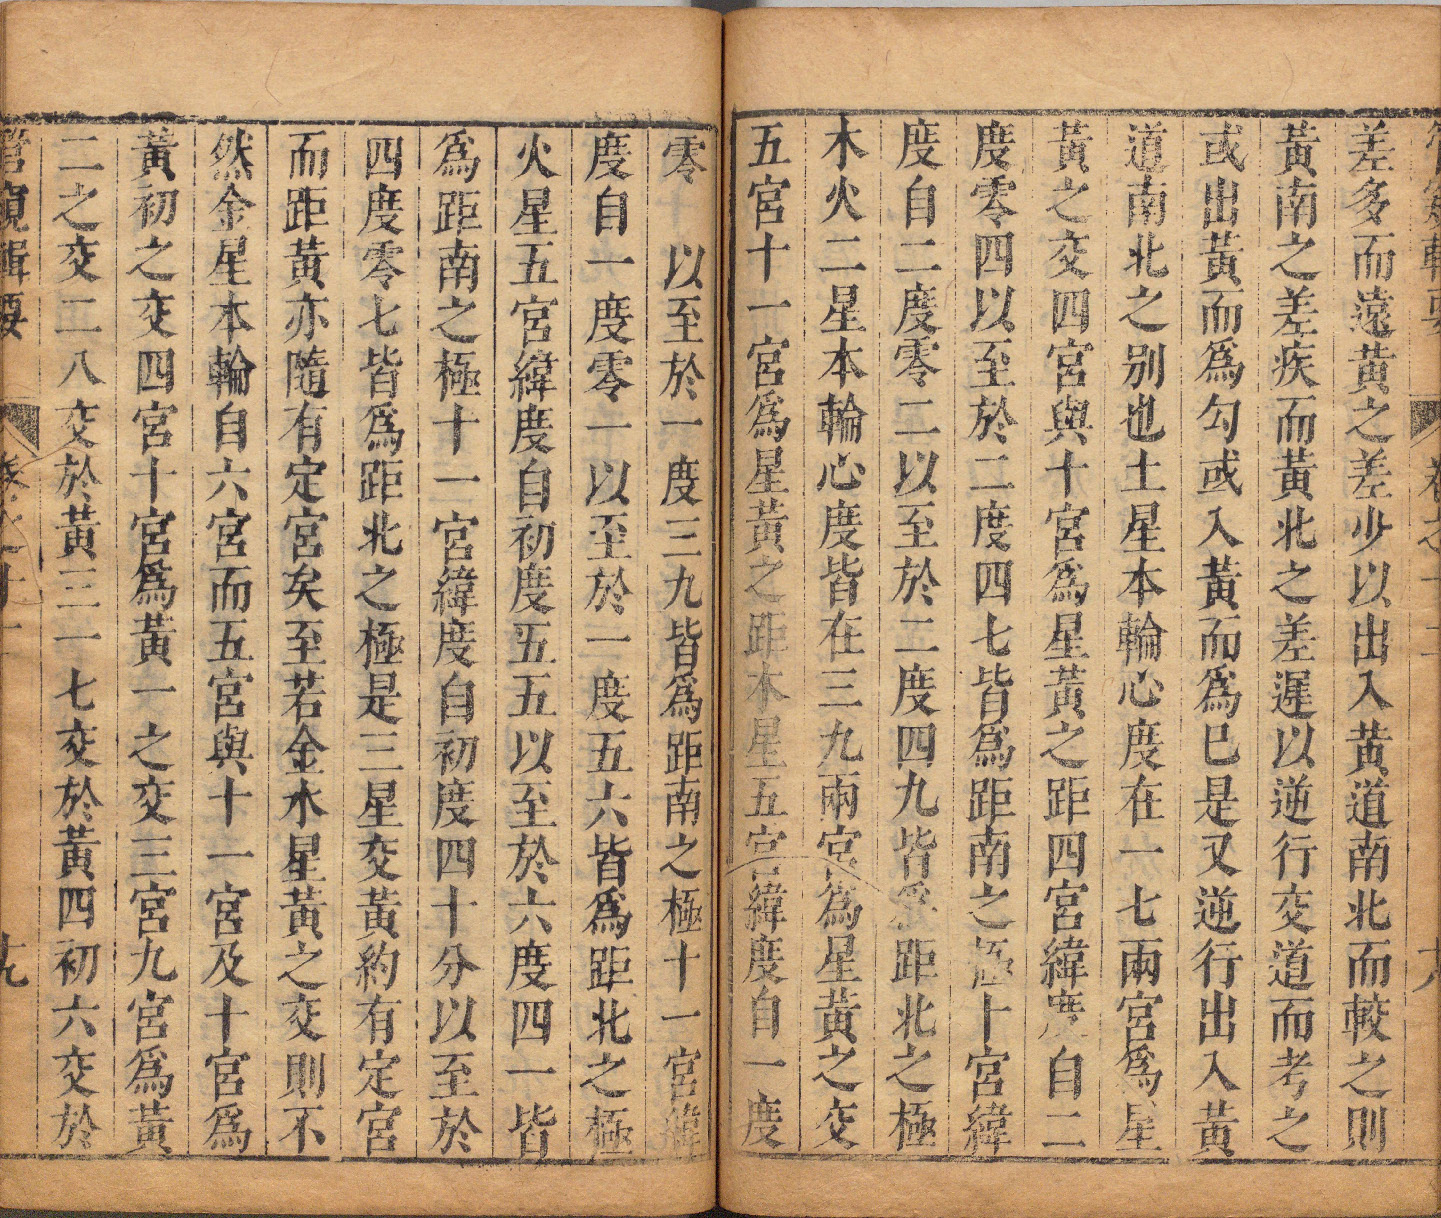 差多而遠黃之差少以出入黃道南北而較之則
黃南之差疾而黃北之差遲以逆行交道而考之
或出黃而爲勾或入黃而爲巳是又逆行出入黃
道南北之別也土星本輪心度在一七兩宮爲星
黃之交四宮與十宮爲星黃之距四宮緯度自二
度零四以至於二度四七皆爲距南之極十宮緯
度自二度零二以至於二度四九皆爲距北之極
木火二星本輪心度皆在三九兩宮爲星黃之交
五宮十一宮爲星黃之距木星五宮緯度自一度
零 以至於一度三九皆爲距南之極十一宮緯
度自一度零一以至於一度五六皆爲距北之極
火星五宮緯度自初度五五以至於六度四一皆
爲距南之極十一宮緯度自初度四十分以至於
四度零七皆爲距北之極是三星交黃約有定宮
而距黃亦隨有定宮矣至若金水星黃之交則不
然金星本輪自六宮而五宮與十一宮及十宮爲
黃初之交四宮十宮爲黃一之交三宮九宮爲黃
二之交二八交於黃三一七交於黃四初六交於
管窺輯要 卷之十二 十九